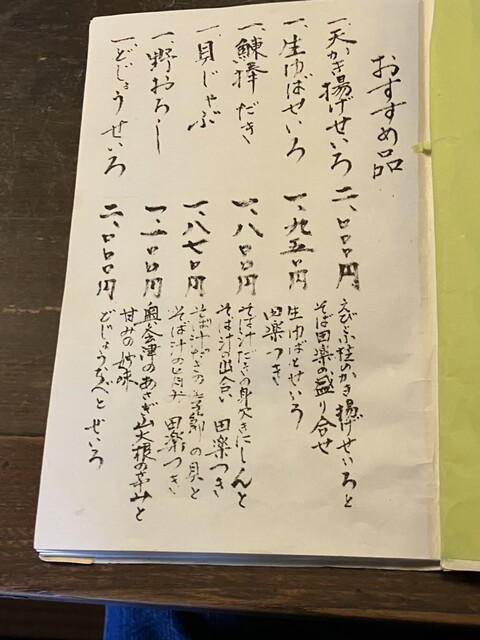 おすすめ品
一、天かき揚げせいろ 二、〇〇〇円
えびと小柱のかき揚げせいろと
そば田楽の盛り合せ
一、生ゆばせいろ 一、九五〇円
生ゆばとせいろ
田楽つき
一、鰊棒だき 一、八〇〇円
そば汁だきの身欠きにしんと
そば汁の出合い 田楽つき
一、貝じゃぶ 一、八七〇円
そば汁だきの の貝と
そば汁の 田楽つき
一、野おろし 一、一〇〇円
奥会津のあさぎ山大根の辛みと
甘みの妙味
一、どじょうせいろ 二、〇〇〇円
どじょうなべと せいろ